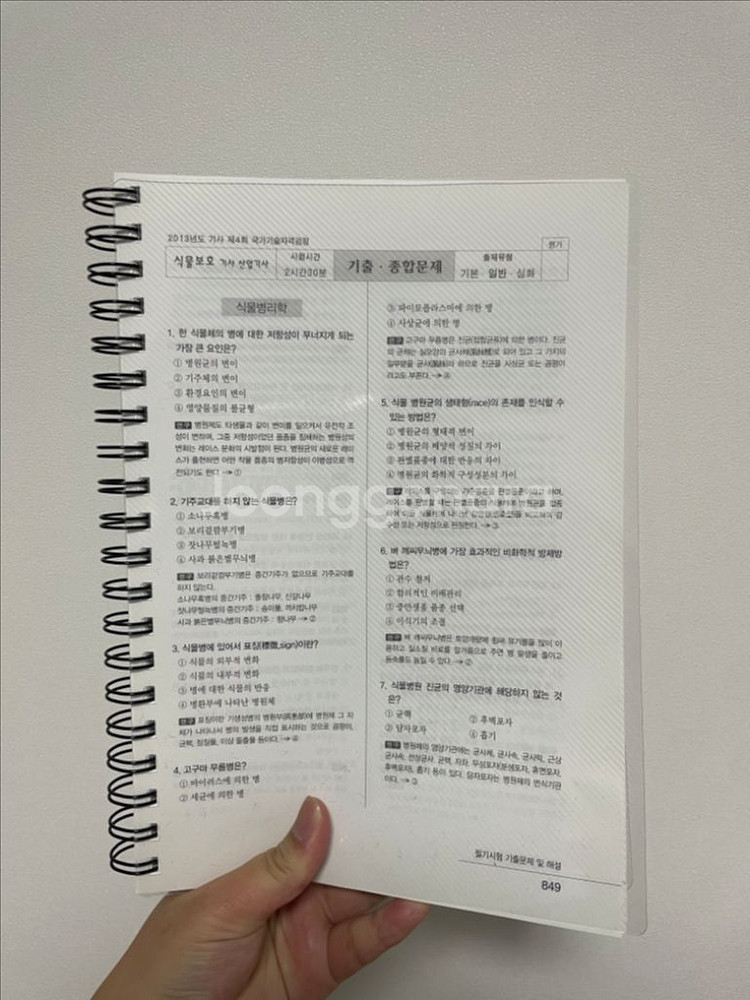 2013년도 기사 제4회 국가기술자격검정
평가
식물보호 기사 산업기사
시험시간
2시간30분
기출·종합문제
출제유형
기본·일반·심화
식물병리학
1. 한 식물체의 병에 대한 저항성이 무너지게 되는
가장 큰 요인은?
① 병원균의 변이
② 기주체의 변이
③ 환경요인의 변이
④ 영양물질의 불균형
연구 병원체도 타생물과 같이 변이를 일으켜서 유전적 조
성이 변하며, 그중 저항성이었던 품종을 침해하는 병원성의
변화는 레이스 분화의 시발점이 된다. 병원균의 새로운 레이
스가 출현하면 어떤 작물 품종의 병저항성이 이병성으로 역
전되기도 한다. →①
2. 기주교대를 하지 않는 식물병은?
① 소나무혹병
② 보리겉깜부기병
③ 잣나무털녹병
④ 사과 붉은별무늬병
연구 보리겉깜부기병은 중간기주가 없으므로 기주교대를
하지 않는다.
소나무혹병의 중간기주 : 졸참나무, 신갈나무
잣나무털녹병의 중간기주 : 송이풀, 까치밥나무
사과 붉은별무늬병의 중간기주 : 향나무 →②
3. 식물병에 있어서 표징(標徵,sign)이란?
① 식물의 외부적 변화
② 식물의 내부적 변화
③ 병에 대한 식물의 반응
④ 병환부에 나타난 병원체
연구 표징이란 기생성병의 병환부(病患部)에 병원체 그 자
체가 나타나서 병의 발생을 직접 표시하는 것으로 곰팡이,
균핵, 점질물, 이상 돌출물 등이다. →④
4. 고구마 무름병은?
① 바이러스에 의한 병
② 세균에 의한 병
③ 파이토플라스마에 의한 병
④ 사상균에 의한 병
연구 고구마 무름병은 진균(접합균류)에 의한 병이다. 진균
의 균체는 실모양의 균사체로 되어 있고 그 가지의
일부분을 균사라 하므로 진균을 사상균 또는 곰팡이
라고도 부른다. →④
5. 식물 병원균의 생태형(race)의 존재를 인식할 수
있는 방법은?
① 병원균의 형태적 변이
② 병원균의 배양적 성질의 차이
③ 판별품종에 대한 반응의 차이
④ 병원균의 화학적 구성성분의 차이
연구 레이스를 구성하는 기주품종을 판별품종이라고 하며,
성 또는 저항성으로 판정한다. →③
6. 벼 깨씨무늬병에 가장 효과적인 비화학적 방제방
법은?
① 관수 철저
② 합리적인 비배관리
③ 중만생종 품종 선택
④ 이식기의 조절
연구 벼 깨씨무늬병은 토양개량에 힘써 유기물을 많이 이
용하고 질소질 비료를 알거름으로 주면 병 발생을 줄이고
등숙률도 높일 수 있다. →②
7. 식물병원 진균의 영양기관에 해당하지 않는 것
은?
① 균핵 ② 후벽포자
③ 담자포자 ④ 흡기
연구 병원체의 영양기관에는 균사체, 균사속, 균사막, 근상
균사속, 선상균사, 균핵, 자좌, 무성포자(분생포자, 휴면포자,
후벽포자), 흡기 등이 있다. 담자포자는 병원체의 번식기관
이다. →③
필기시험 기출문제 및 해설
849